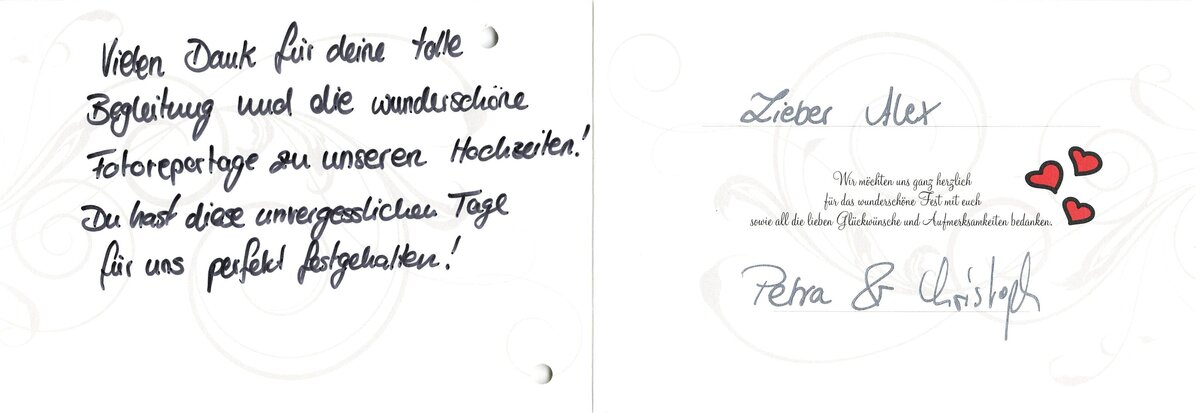 Vielen Dank für deine tolle
Begleitung und die wunderschöne
Fotoreportage zu unseren Hochzeiten!
Du hast diese unvergesslichen Tage
für uns perfekt festgehalten!
Lieber Alex
Wir möchten uns ganz herzlich
für das wunderschöne Fest mit euch
sowie all die lieben Glückwünsche und Aufmerksamkeiten bedanken.
Petra & Christoph